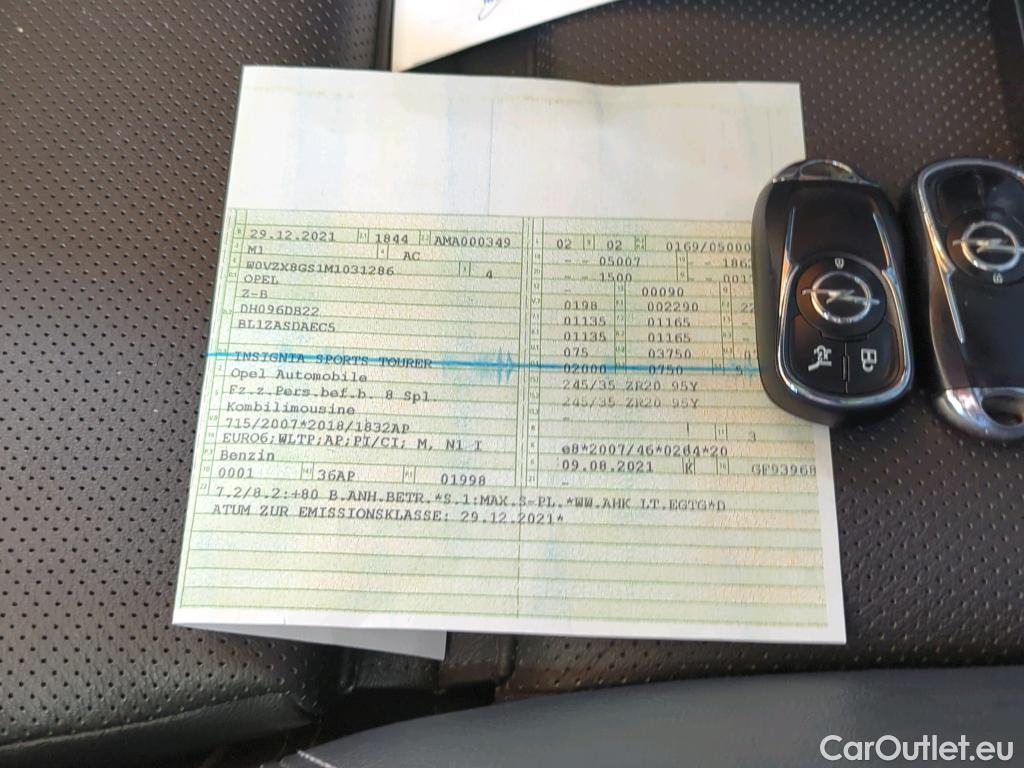 29.12.2021 1844 AMA000349
M1 AC
W0VZX8GS1M1031286 4
OPEL
Z-B
DH096DB22
BL1ZASDAEC5
INSIGNIA SPORTS TOURER
Opel Automobile
Fz.z.Pers.bef.b. 8 Spl.
Kombilimousine
715/2007*2018/1832AP
EURO6;WLTP;AP;PI/CI; M, N1 I
Benzin
0001 36AP 01998
02 02 0169/05000
-- 05007 - 186
-- 1500
00090
0198 002290 22
01135 01165
01135 01165
075 03750
02000 0750
245/35 ZR20 95Y
245/35 ZR20 95Y
3
e8*2007/46*0264*20
09.08.2021 K GF93968
7.2/8.2:+80 B.ANH.BETR.*S.1:MAX.S-PL.*WW.AHK LT.EGTG*D
ATUM ZUR EMISSIONSKLASSE: 29.12.2021*
CarOutlet.eu